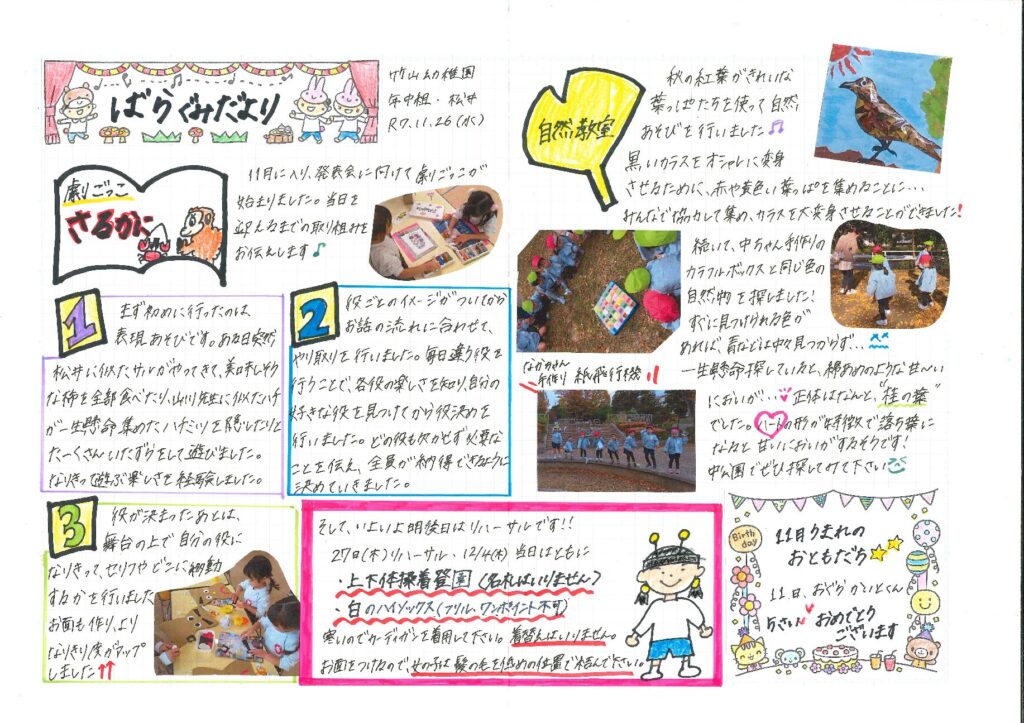 ばらぐみだより
竹山幼稚園
年中組・松井
R7.11.26(水)
劇ごっこ
さるかに
11月に入り、発表会に向けて劇ごっこが
始まりました。当日を
迎えるまでの取り組みを
お伝えします♪
1
まず初めに行ったのは、
表現あそびです。ある日突然
松井に似たサルがやってきて、美味しそう
な柿を全部食べたり、山川先生に似たハチ
が一生懸命集めたハチミツを隠したりと
たーくさんいたずらをして遊びました。
なりきって遊ぶ楽しさを経験しました。
2
役ごとのイメージがついてから
お話の流れに合わせて、
やり取りを行いました。毎日違う役を
行うことで、各役の楽しさを知り、自分の
好きな役を見つけてから役決めを
行いました。どの役も欠かせず必要な
ことを伝え、全員が納得できるように
決めていきました。
3
役が決まったあとは、
舞台の上で自分の役に
なりきって、セリフやどこに移動
するかを行いました
お面も作り、より
なりきり度がアップ
しました↑↑
そして、いよいよ明後日はリハーサルです!!
27日(木)リハーサル・12/4(木)当日はともに
・上下体操着登園(名札はいりません)
・白のハイソックス(フリル、ワンポイント不可)
寒いのでカーデガンを着用して下さい。着替えはいりません。
お面をつけるので、女の子は髪の毛を低めの位置で結んで下さい。
自然教室
秋の紅葉がきれいな
葉っぱたちを使って自然
あそびを行いました♫
黒いカラスをオシャレに変身
させるために、赤や黄色い葉っぱを集めることに…
みんなで協力して集め、カラスを大変身させることができました!
続いて、中ちゃん手作りの
カラフルボックスと同じ色の
自然物を探しました!
すぐに見つけられる色が
あれば、青などは中々見つからず…
一生懸命探していると、綿あめのような甘〜い
においが…♥正体はなんと、"桂の葉"
でした。ハートの形が特徴で落ち葉に
なると甘いにおいがするそうです!
中公園でぜひ探してみて下さい
なかちゃん
手作り 紙飛行機!!
Birth
day
11月うまれの
おともだち
11日、おぐら かいとくん
5さい♥おめでとう
ございます